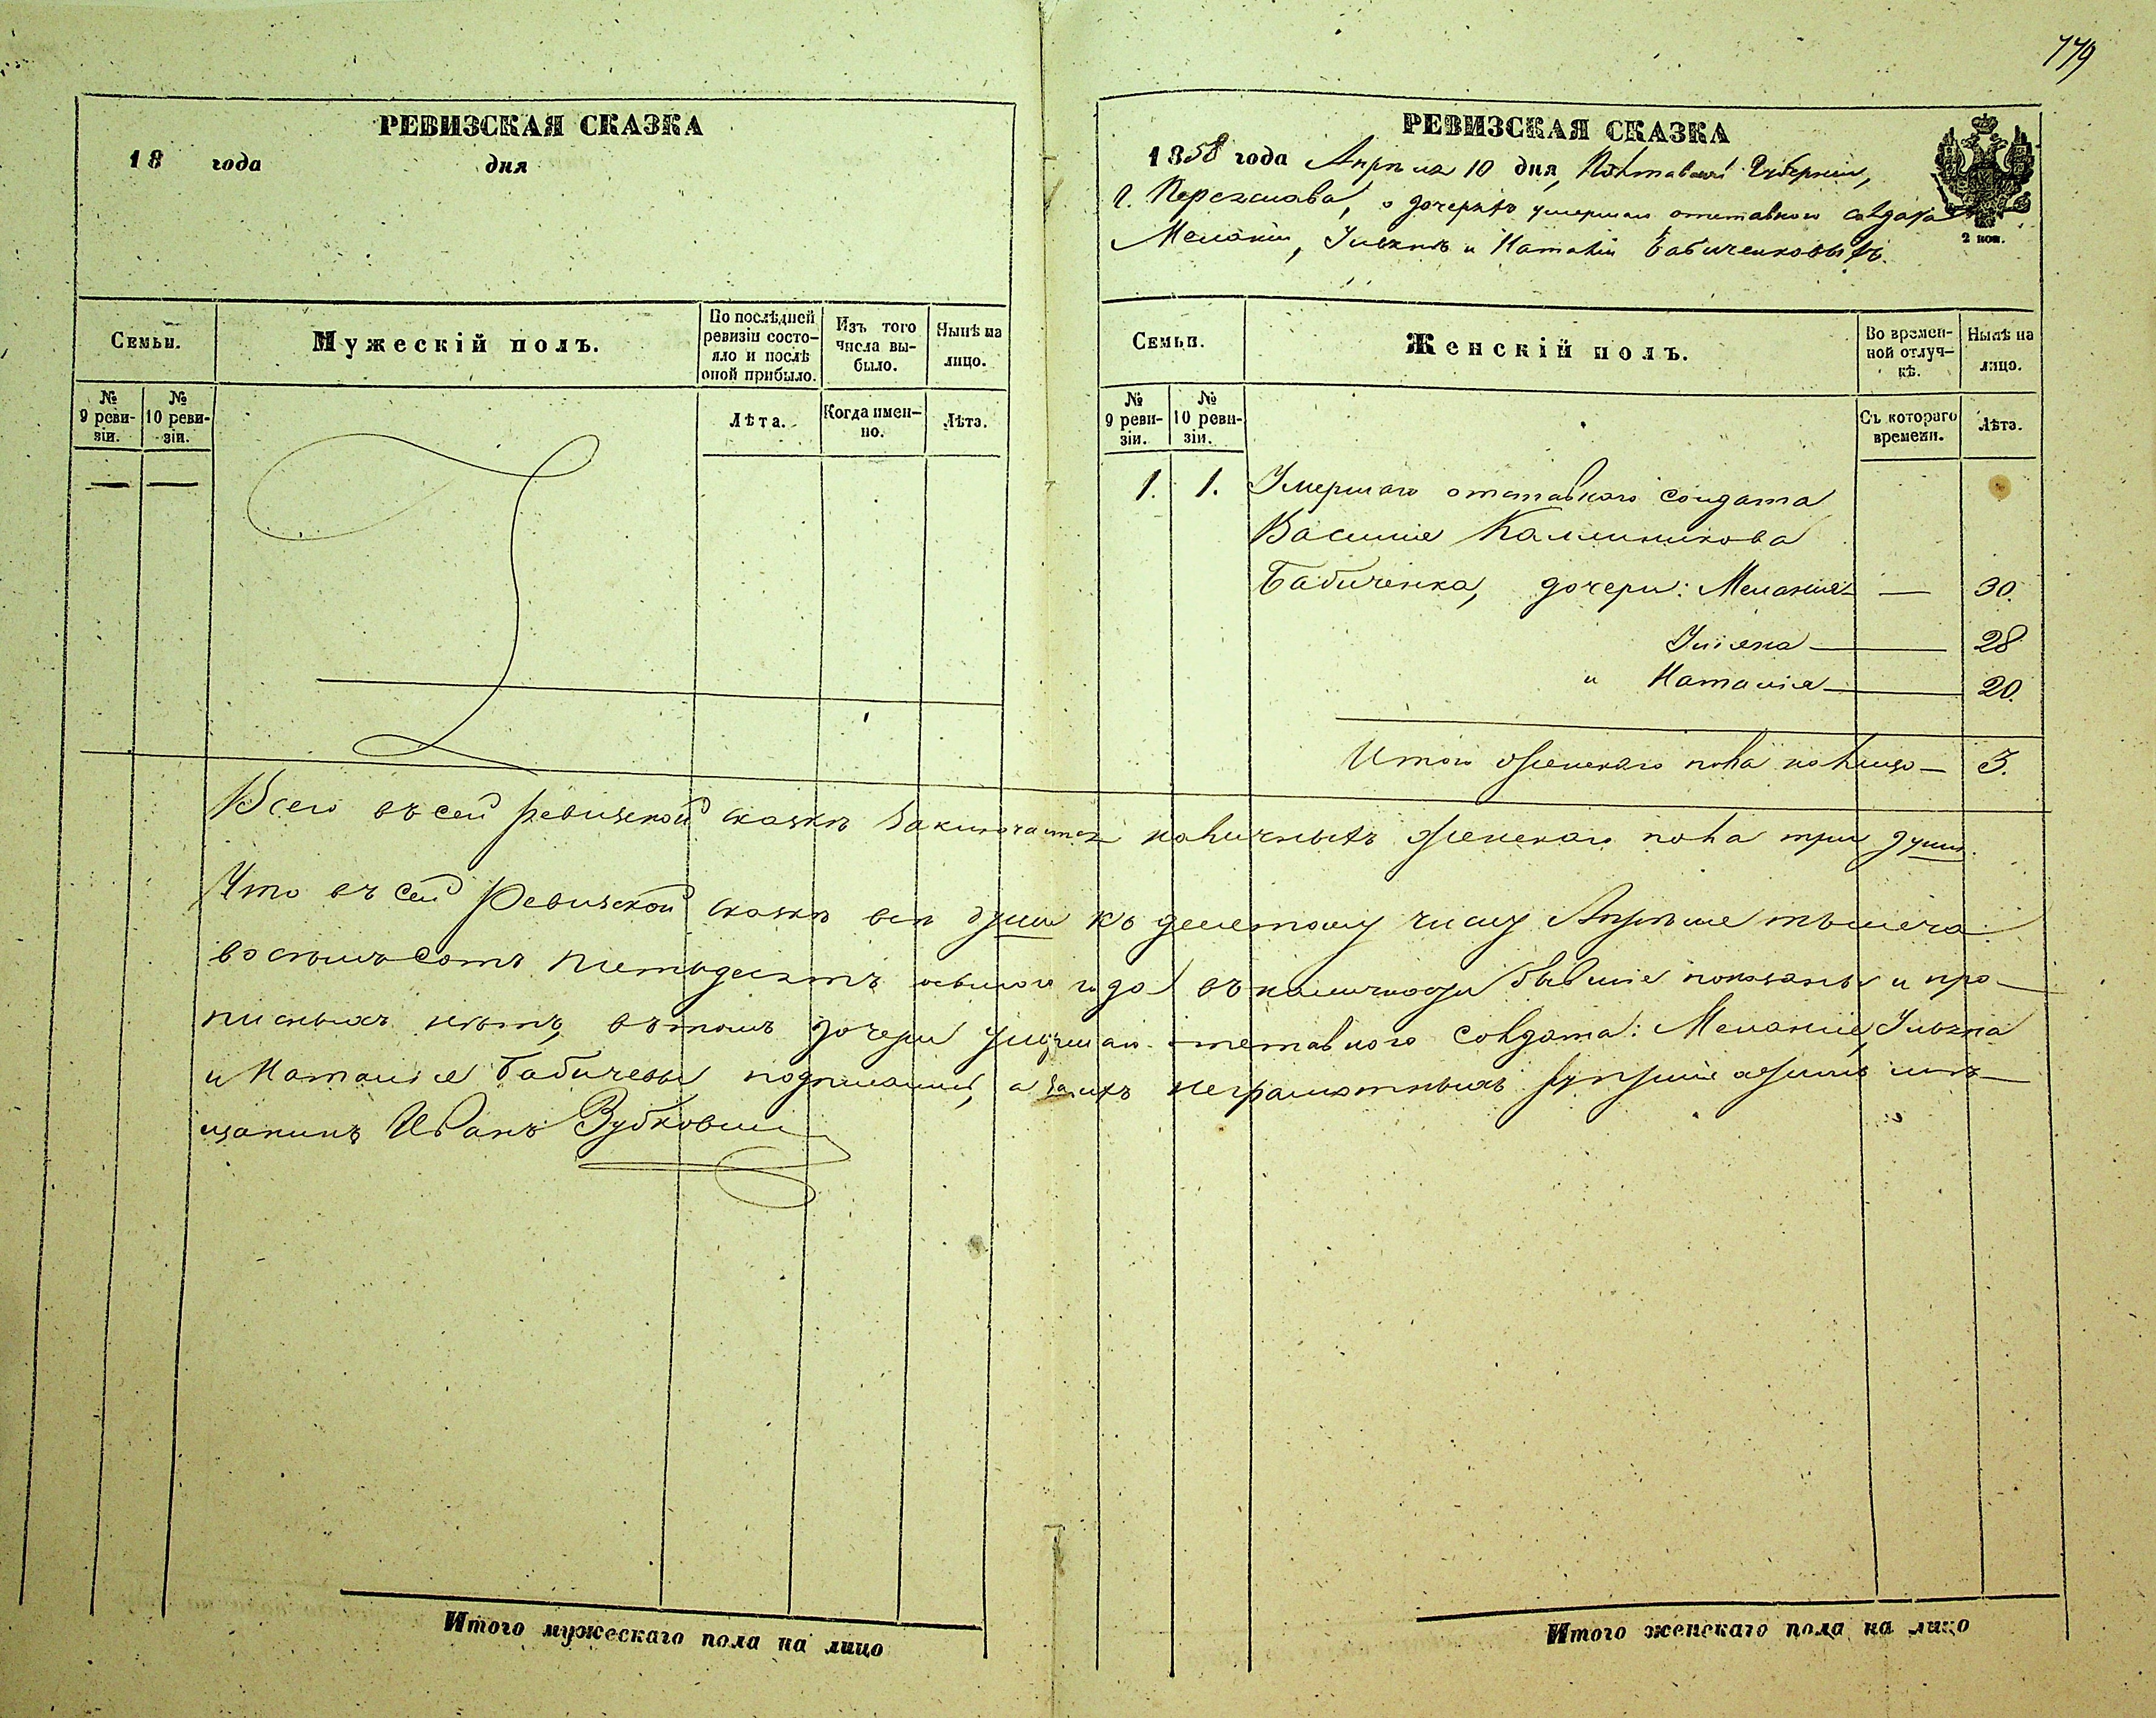 779
РЕВИЗСКАЯ СКАЗКА
18 года дня
Семьи.
Мужескій полъ.
По послѣдней ревизіи состояло и послѣ оной прибыло.
Изъ того числа выбыло.
Нынѣ на лицо.
№ 9 ревизіи.
№ 10 ревизіи.
Лѣта.
Когда именно.
Лѣта.
РЕВИЗСКАЯ СКАЗКА
1858 года Апрѣля 10 дня, Полтавской Губерніи,
г. Переяслава, о дочеряхъ умершаго отставного солдата
Меланіи, Ульянѣ и Наталіи Бабиченковыхъ.
2 коп.
Семьи.
Женскій полъ.
Во временной отлучкѣ.
Нынѣ на лицо.
№ 9 ревизіи.
№ 10 ревизіи.
Съ котораго времени.
Лѣта.
1. 1. Умершаго отставнаго солдата
Василія Калиникова
Бабиченка, дочери: Меланія — 30.
Уліяна — 28
и Наталія — 20.
Итого женскаго пола на лицо — 3.
Всего въ сей ревизской сказкѣ заключается наличныхъ женскаго пола три души.
Что въ сей Ревизской сказкѣ всѣ души къ десятому числу Апрѣля тысяча
восемьсотъ пятьдесятъ осьмого года въ наличности бывшіе показаны и про-
писныхъ нѣтъ, въ томъ дочери умершаго отставного солдата: Меланія, Ульяна
и Наталія Бабичевы подписались, а за ихъ неграмотныхъ мѣ-
щанинъ Иванъ
Итого мужескаго пола на лицо
Итого женскаго пола на лицо